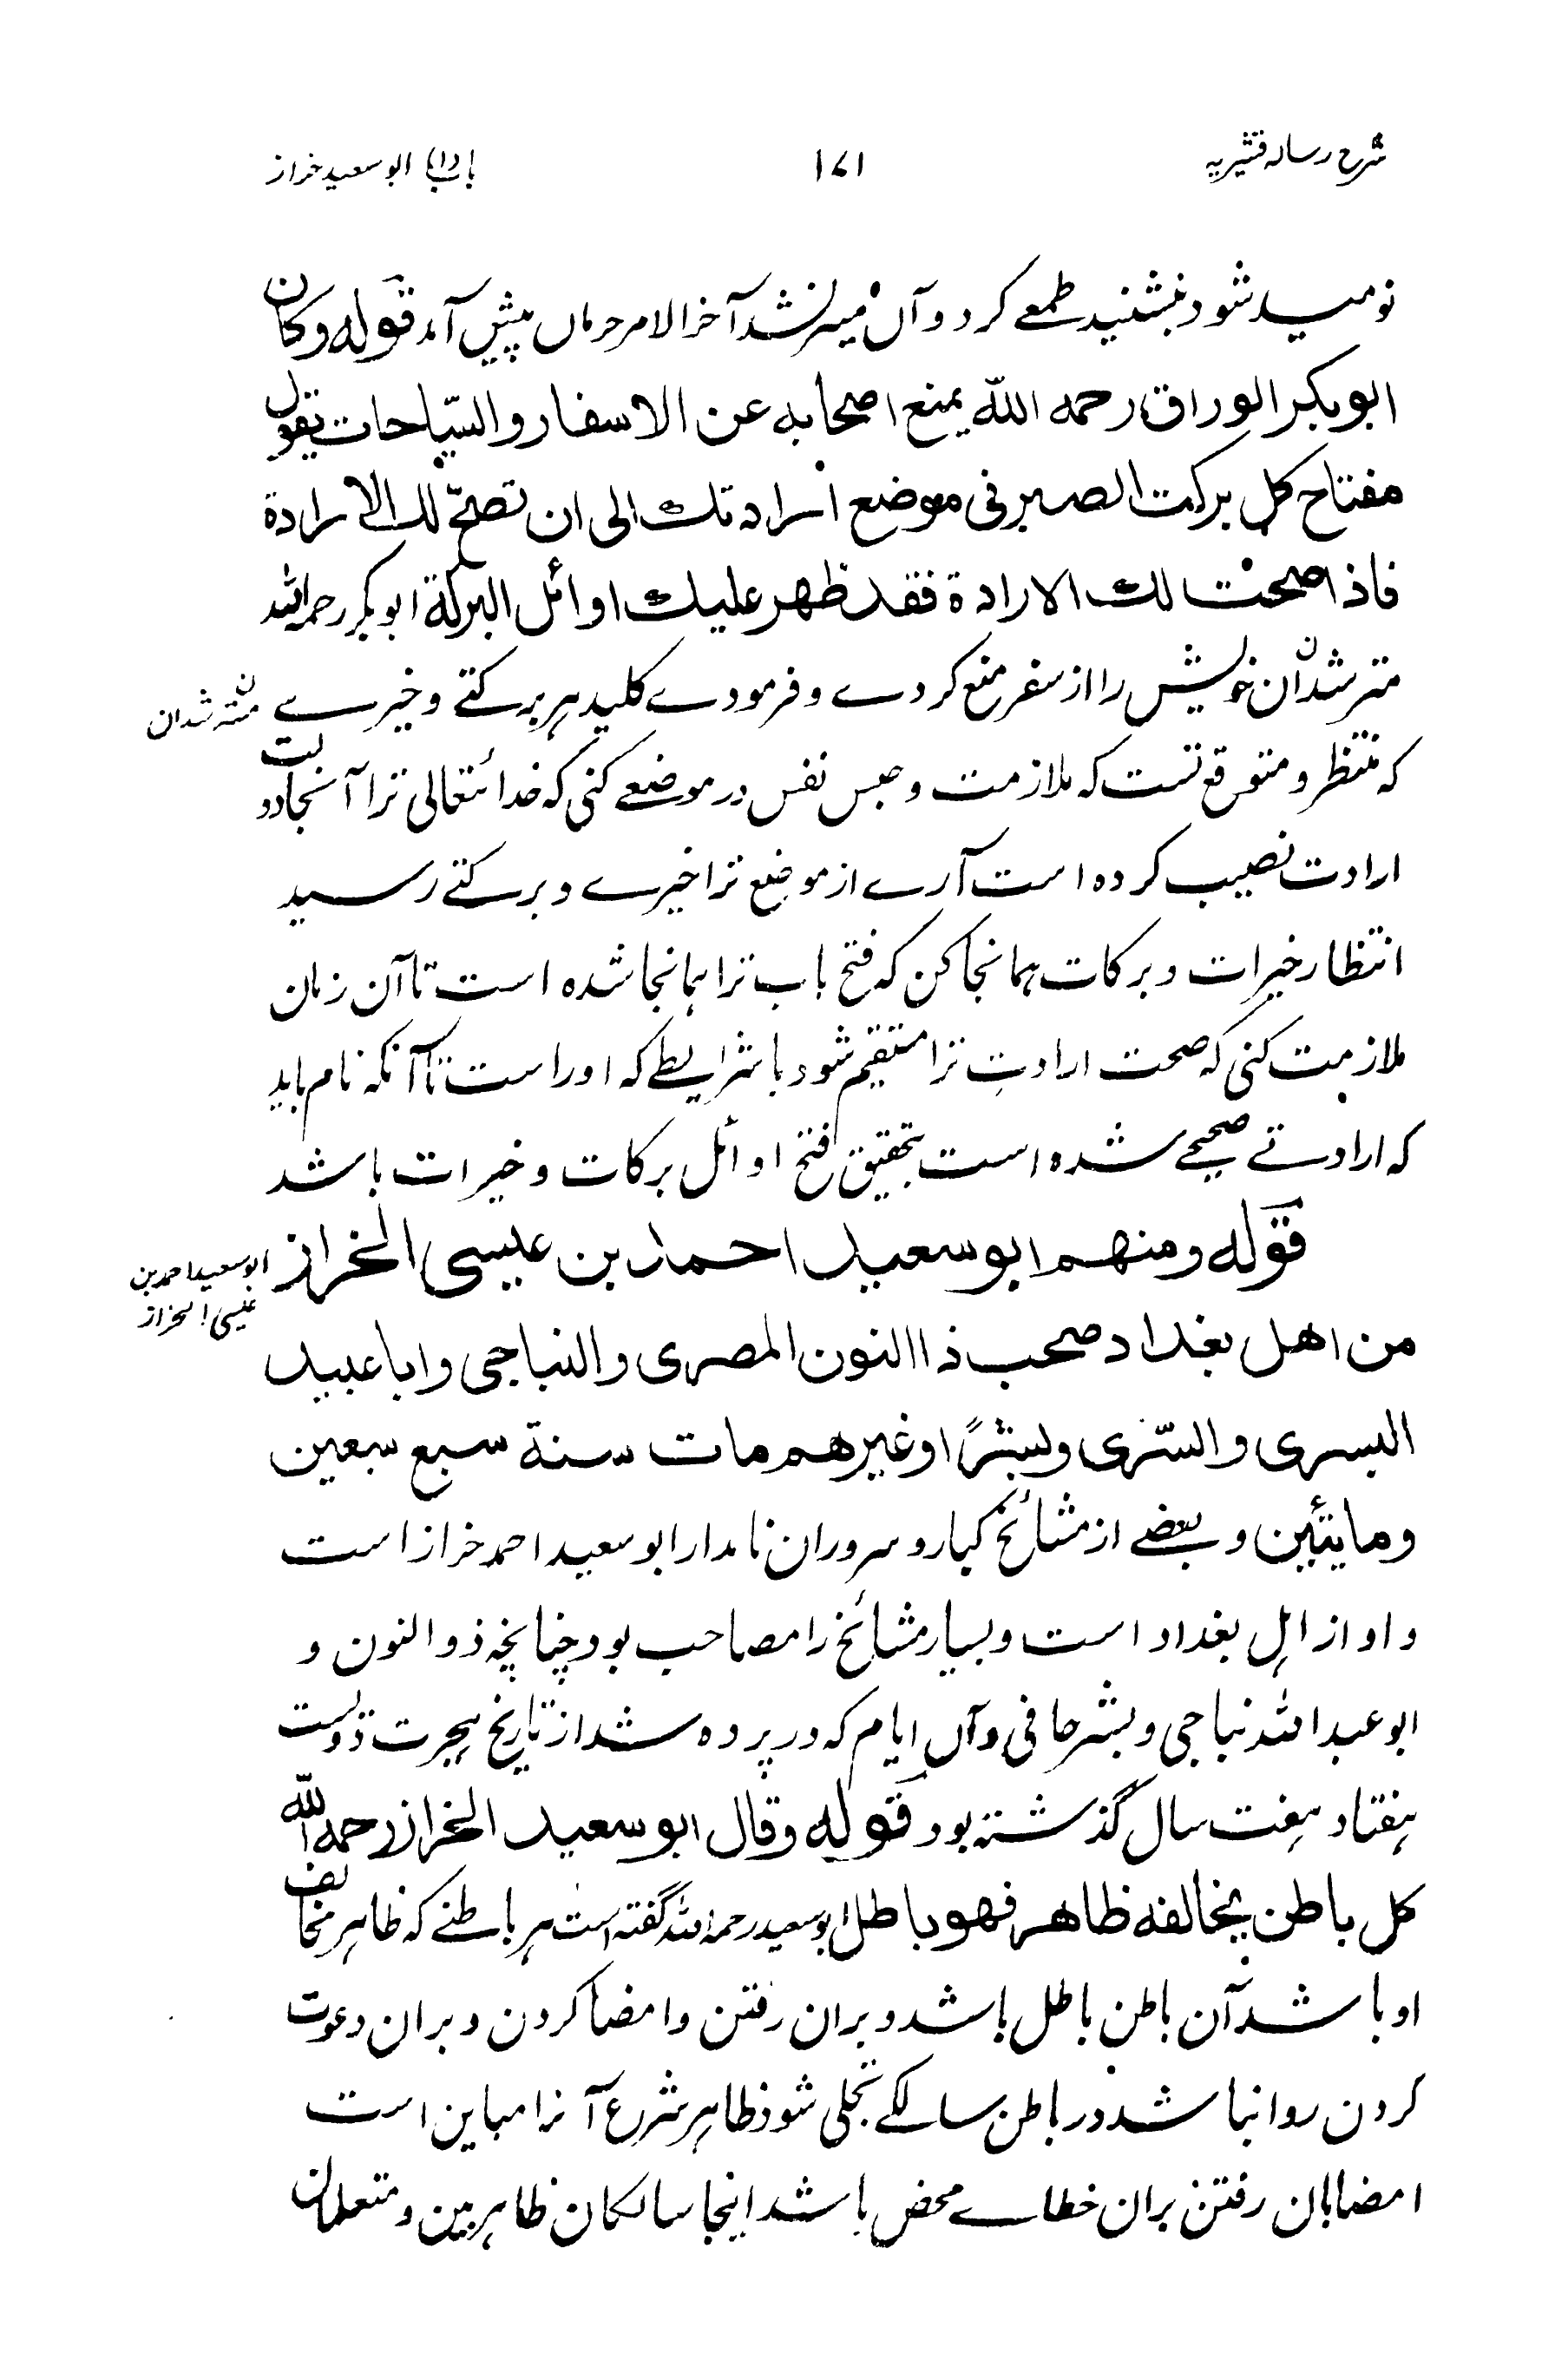 شرح رساله قشیریه
۱۷۱
باب (۱) ابو سعید خراز
نومید شود بنشنید طمعے کرد و آں میسر نشد آخرالامر حرماں پیش آمد قوله وکان
ابوبکر الوراق رحمه اللّٰه یمنع اصحابه عن الاسفار والسّیاحات یقول
مفتاح کل برکت الصبر فی موضع ارادتک الی ان تصحّ لک الارادة
فاذا صحت لک الارادة فقد ظهر علیک اوائل البرکة ابوبکر رحمه الله
مترشدان خویش را از سفر منع کردے و فرمودے کلید هر برکتے و خیرے
مترشدان
که منتظر و متوقع تست که ملازمت و حبس نفس در موضعے کنی که خدائتعالی ترا آنجا دولت
ارادت نصیب کرده است آرے از موضع ترا خیرے و برکتے رسید
انتظار خیرات و برکات همانجا کن که فتح باب ترا همانجا شده است تا آن زمان
ملازمت کنی که صحت ارادتِ ترا مستقیم شود با شرایطے که اوراست تا آنکه نام یابد
که ارادتے صحیحے شده است بتحقیق فتح اوائل برکات و خیرات باشد
قوله ومنهم ابو سعید احمد بن عیسی الخراز
ابو سعید احمد بن
عیسی الخراز
من اهل بغداد صحب ذاالنون المصری والنباجی وابا عبید
البسری والسّری وبشرًا وغیرهم مات سنة سبع سبعین
ومایتئین و بعضے از مشائخ کبار و سروران نامدار ابو سعید احمد خراز است
و او از اهل بغداد است و بسیار مشائخ را مصاحب بود چنانچه ذوالنون و
ابوعبدالله نباجی و بشر حافی وآں ایام که در پرده شد از تاریخ هجرت دولیست
هفتاد هفت سال گذشته بود قوله وقال ابو سعید الخراز رحمه اللّٰه
کل باطن یخالفه ظاهر فهو باطل ابوسعید رحمه الله گفته است هر باطنے که ظاهر مخالف
او باشد آن باطن باطل باشد و بران رفتن و امضا کردن و بران دعوت
کردن روا نباشد در باطن سالکے تجلی شود ظاهر شرع آنرا مباین است
امضابان رفتن بران خطاے محض باشد اینجا سالکان ظاهربین و متعلمان